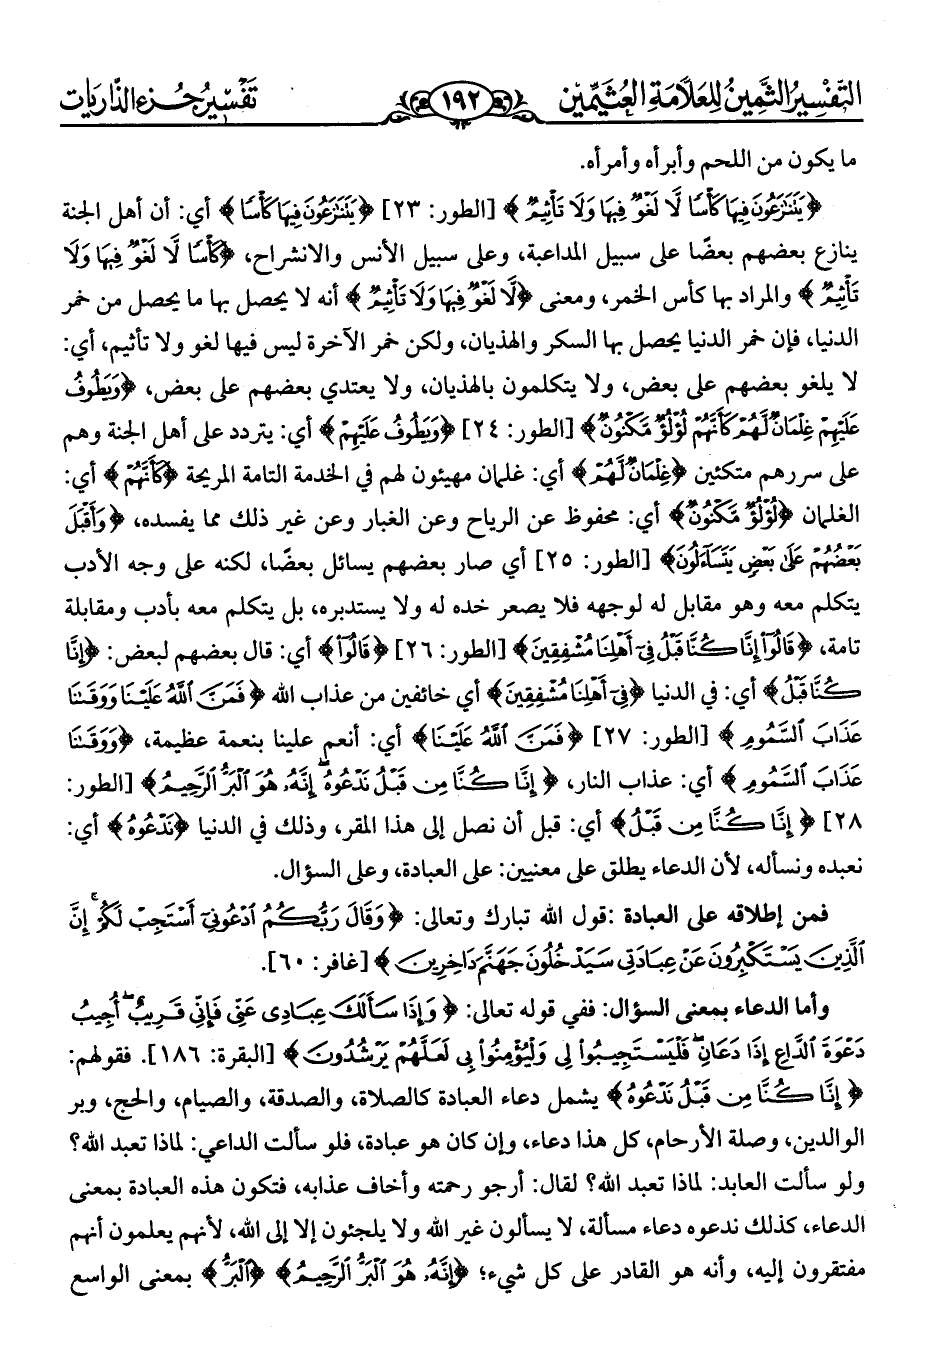 التَّفْسِيرُ الثَّمِينُ لِلعَلَّامَةِ العُثَيْمِين ١٩٢ تَفْسِيرُ جُزْءِ الذَّارِيَات
ما يكون من اللحم وأبرأه وأمرأه.
﴿يَتَنَٰزَعُونَ فِيهَا كَأْسًا لَّا لَغْوٌ فِيهَا وَلَا تَأْثِيمٌ﴾ [الطور: ٢٣] ﴿يَتَنَٰزَعُونَ فِيهَا كَأْسًا﴾ أي: أن أهل الجنة
ينازع بعضهم بعضًا على سبيل المداعبة، وعلى سبيل الأنس والانشراح، ﴿كَأْسًا لَّا لَغْوٌ فِيهَا وَلَا
تَأْثِيمٌ﴾ والمراد بها كأس الخمر، ومعنى ﴿لَّا لَغْوٌ فِيهَا وَلَا تَأْثِيمٌ﴾ أنه لا يحصل بها ما يحصل من خمر
الدنيا، فإن خمر الدنيا يحصل بها السكر والهذيان، ولكن خمر الآخرة ليس فيها لغو ولا تأثيم، أي:
لا يلغو بعضهم على بعض، ولا يتكلمون بالهذيان، ولا يعتدي بعضهم على بعض، ﴿وَيَطُوفُ
عَلَيْهِمْ غِلْمَانٌ لَّهُمْ كَأَنَّهُمْ لُؤْلُؤٌ مَّكْنُونٌ﴾ [الطور: ٢٤] ﴿وَيَطُوفُ عَلَيْهِمْ﴾ أي: يتردد على أهل الجنة وهم
على سررهم متكئين ﴿غِلْمَانٌ لَّهُمْ﴾ أي: غلمان مهيئون لهم في الخدمة التامة المريحة ﴿كَأَنَّهُمْ﴾ أي:
الغلمان ﴿لُؤْلُؤٌ مَّكْنُونٌ﴾ أي: محفوظ عن الرياح وعن الغبار وعن غير ذلك مما يفسده، ﴿وَأَقْبَلَ
بَعْضُهُمْ عَلَىٰ بَعْضٍ يَتَسَآءَلُونَ﴾ [الطور: ٢٥] أي صار بعضهم يسائل بعضًا، لكنه على وجه الأدب
يتكلم معه وهو مقابل له لوجهه فلا يصعر خده له ولا يستدبره، بل يتكلم معه بأدب ومقابلة
تامة، ﴿قَالُوٓا۟ إِنَّا كُنَّا قَبْلُ فِىٓ أَهْلِنَا مُشْفِقِينَ﴾ [الطور: ٢٦] ﴿قَالُوٓا۟﴾ أي: قال بعضهم لبعض: ﴿إِنَّا
كُنَّا قَبْلُ﴾ أي: في الدنيا ﴿فِىٓ أَهْلِنَا مُشْفِقِينَ﴾ أي خائفين من عذاب الله ﴿فَمَنَّ ٱللَّهُ عَلَيْنَا وَوَقَىٰنَا
عَذَابَ ٱلسَّمُومِ﴾ [الطور: ٢٧] ﴿فَمَنَّ ٱللَّهُ عَلَيْنَا﴾ أي: أنعم علينا بنعمة عظيمة، ﴿وَوَقَىٰنَا
عَذَابَ ٱلسَّمُومِ﴾ أي: عذاب النار، ﴿إِنَّا كُنَّا مِن قَبْلُ نَدْعُوهُ ۖ إِنَّهُۥ هُوَ ٱلْبَرُّ ٱلرَّحِيمُ﴾ [الطور:
٢٨] ﴿إِنَّا كُنَّا مِن قَبْلُ﴾ أي: قبل أن نصل إلى هذا المقر، وذلك في الدنيا ﴿نَدْعُوهُ﴾ أي:
نعبده ونسأله، لأن الدعاء يطلق على معنيين: على العبادة، وعلى السؤال.
فمن إطلاقه على العبادة :قول الله تبارك وتعالى: ﴿وَقَالَ رَبُّكُمُ ٱدْعُونِىٓ أَسْتَجِبْ لَكُمْ ۚ إِنَّ
ٱلَّذِينَ يَسْتَكْبِرُونَ عَنْ عِبَادَتِى سَيَدْخُلُونَ جَهَنَّمَ دَاخِرِينَ﴾ [غافر: ٦٠].
وأما الدعاء بمعنى السؤال: ففي قوله تعالى: ﴿وَإِذَا سَأَلَكَ عِبَادِى عَنِّى فَإِنِّى قَرِيبٌ ۖ أُجِيبُ
دَعْوَةَ ٱلدَّاعِ إِذَا دَعَانِ ۖ فَلْيَسْتَجِيبُوا۟ لِى وَلْيُؤْمِنُوا۟ بِى لَعَلَّهُمْ يَرْشُدُونَ﴾ [البقرة: ١٨٦]. فقولهم:
﴿إِنَّا كُنَّا مِن قَبْلُ نَدْعُوهُ﴾ يشمل دعاء العبادة كالصلاة، والصدقة، والصيام، والحج، وبر
الوالدين، وصلة الأرحام، كل هذا دعاء، وإن كان هو عبادة، فلو سألت الداعي: لماذا تعبد الله؟
ولو سألت العابد: لماذا تعبد الله؟ لقال: أرجو رحمته وأخاف عذابه، فتكون هذه العبادة بمعنى
الدعاء، كذلك ندعوه دعاء مسألة، لا يسألون غير الله ولا يلجئون إلا إلى الله، لأنهم يعلمون أنهم
مفتقرون إليه، وأنه هو القادر على كل شيء؛ ﴿إِنَّهُۥ هُوَ ٱلْبَرُّ ٱلرَّحِيمُ﴾ ﴿ٱلْبَرُّ﴾ بمعنى الواسع